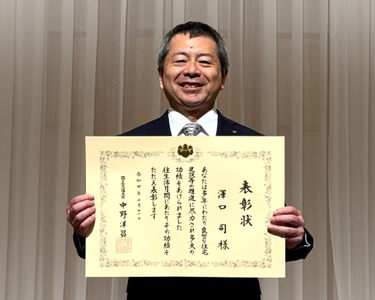 表彰状
澤口 司 様
あなたは多年にわたり良質な住宅
建設等の推進に尽力され多大の
功績をあげられました
住生活月間にあたりその功績を
たたえ表彰します
令和七年十月
国土交通大臣 中野洋昌